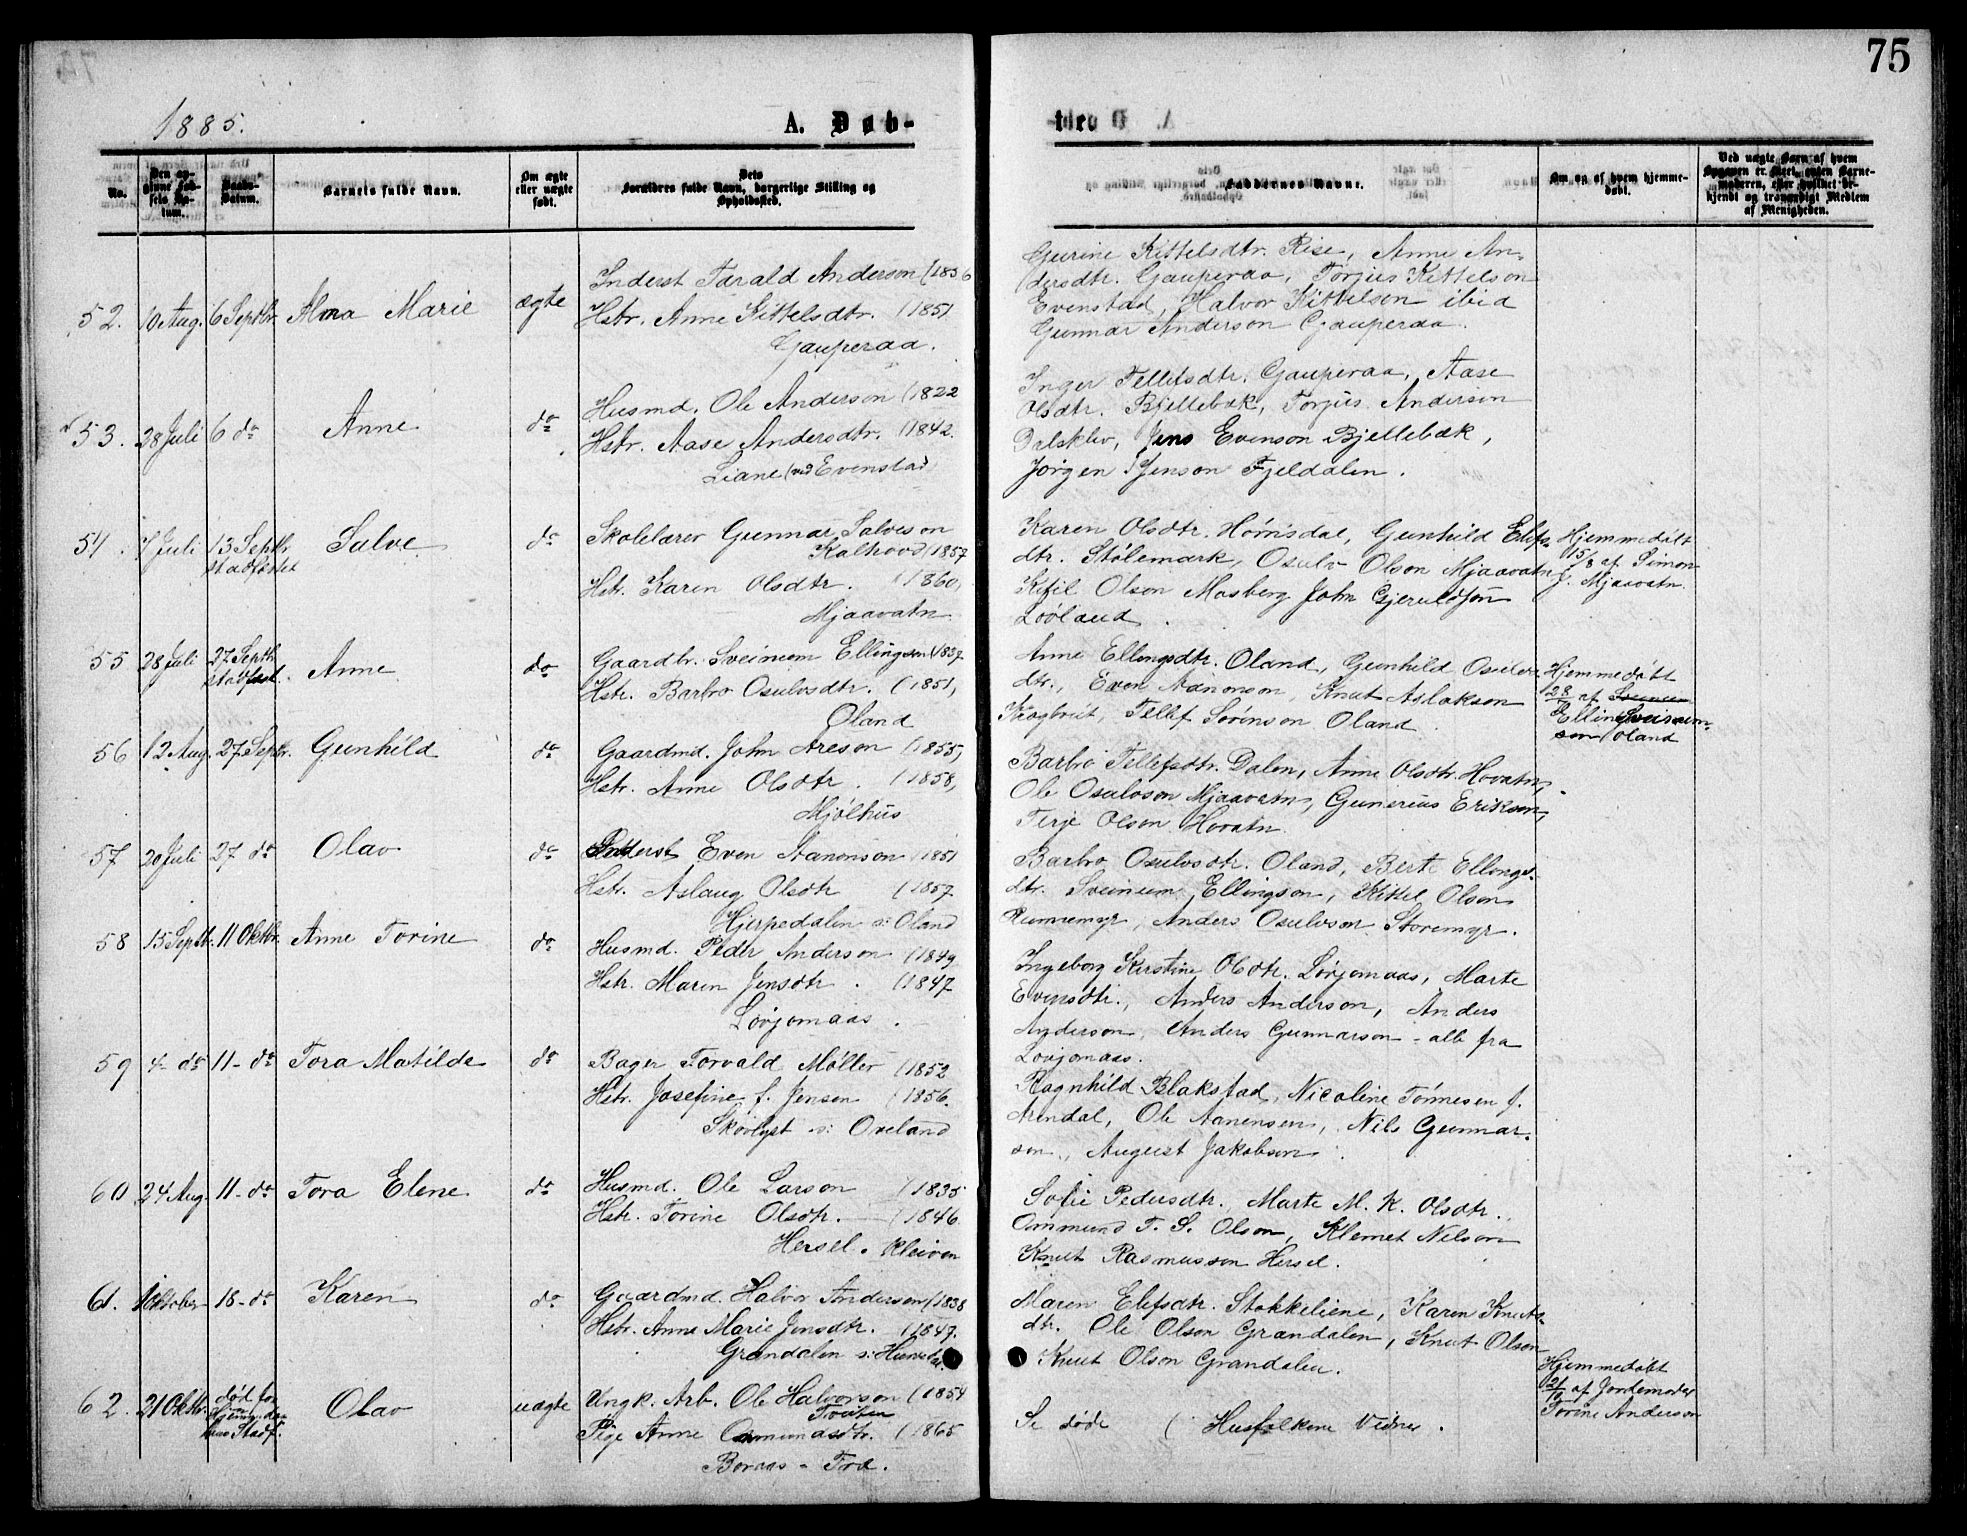 75
1885.
A. Døb-
No.
Den op-
givne Fød-
sels Da-
tum.
Daabs-
Datum.
Barnets fulde Navn.
Om ægte
eller uægte
født.
Dets
Forældres fulde Navn, borgerlige Stilling og
Opholdssted.
Faddernes Navne.
Om og af hvem hjemme-
døbt.
Ved uægte Barn af hvem
Opgaven er skeet, enten Barne-
moderen, eller hvilket be-
kjendt og troværdigt Medlem
af Menigheden.
52. 10 Aug. 6 Septbr Alma Marie ægte
Inderst Tarald Anderson (1856
Hstr. Anne Kittelsdtr. (1851
Gauperaa.
Gurine Kittelsdtr. Rise, Anne An-
dersdtr. Gauperaa, Torjus Kittelson
Evenstad, Halvor Kittelson ibid
Gunnar Anderson Gauperaa.
53. 28 Juli 6 do Anne do
Husmd. Ole Anderson (1822
Hstr. Aase Andersdtr. (1842.
Liane (ved Evenstad
Inger Tellefsdtr. Gauperaa, Aase
Olsdtr. Bjellebæk, Torjus Anderson
Dalsklev, Jens Evenson Bjellebæk,
Jørgen Jenson Fjeldalen.
54. 7 Juli 13 Septbr Salve do
stadfæstet
Skolelærer Gunnar Salveson
Kalhovd (1857
Hstr. Karen Olsdtr. (1860,
Mjaavatn
Karen Olsdtr. Hørrisdal, Gunhild Elefs-
dtr. Stølemark, Osulv Olson Mjaavatn
Ketil Olson Mosberg John Gjeruldson
Løvland.
Hjemmedøbt
15/8 af Simon
J. Mjaavatn.
55 28 Juli 27 Septbr Anne do
stadfæst.
Gaardbr. Sveinum Ellingson (1837
Hstr. Barbro Osulvsdtr. (1851,
Oland
Anne Ellingsdtr. Oland, Gunhild Osulvs
dtr., Even Aanonson, Knut Aslakson
Kragbrút, Tellef Sørenson Oland
Hjemmedøbt
28 af Sveinum
Elling Sveinum-
son Oland
56 12 Aug. 27 Septbr. Gunhild do
Gaardmd. John Areson (1855,
Hstr. Anne Olsdtr. (1858,
Mjølhus
Barbro Tellefsdtr. Dalen, Anne Olsdtr. Hovatn,
Ole Osulvson Mjaavatn, Gunerius Erikson,
Terje Olson Hovatn.
57 20 Juli 27 do Olav do
Inderst Even Aanonson (1851
Hstr. Aslaug Olsdtr (1857.
Hjerpedalen s: Oland
Barbro Osulvsdtr. Oland, Berte Ellings-
dtr. Sveinum Ellingson, Kittel Olson
Rennemyr, Anders Osulvson Storemyr.
58 15 Septbr. 11 Oktbr. Anne Torine do
Husmd. Peder Anderson (1849
Hstr. Maren Jensdtr. (1847
Løvjomaas.
Ingeborg Kerstine Olsdtr. Løvjomaas, Marte
Evensdtr., Anders Anderson, Anders
Anderson, Anders Gunnarson - alle fra
Løvjomaas.
59 4 do 11 - do Tora Matilde do
Bager Torvald Møller (1852
Hstr. Josefine f. Jensen (1856.
Skovlyst s: Oveland
Ragnhild Blakstad, Nicoline Tønnesen f.
Arendal, Ole Aanensen, Nils Gunnar-
son, August Jakobsen.
60 24 Aug. 11 - do Tora Elene do
Husmd. Ole Larson (1835
Hstr. Torine Olsdtr. (1846
Hersel. Kleiven
Sofie Pedersdtr. Marte M. K. Olsdtr.
Ommund T. S. Olson, Klemet Nilson
Knut Rasmusson Hersel.
61. 1 Oktober 18 - do Karen do
Gaardmd. Halvor Anderson (1838
Hstr. Anne Marie Jensdtr. (1847.
Grandalen s:
Maren Elefsdtr. Stokkeliene, Karen Knuts-
dtr. Ole Olson Grandalen, Knut Olson
Knut Olson Grandalen.
62. 21 Oktbr. død før Olav uægte
Hjemmedaa
bens Stadf.
Ungk. Arb. Ole Halvorson (1854
Tveiten
Pige Anne Ommundsdtr. (1865
Boraas - Frol.
Se døde ( Husfolkene Vidner.
Hjemmedøbt
21/10 af Jordemoder
Torine Anderson